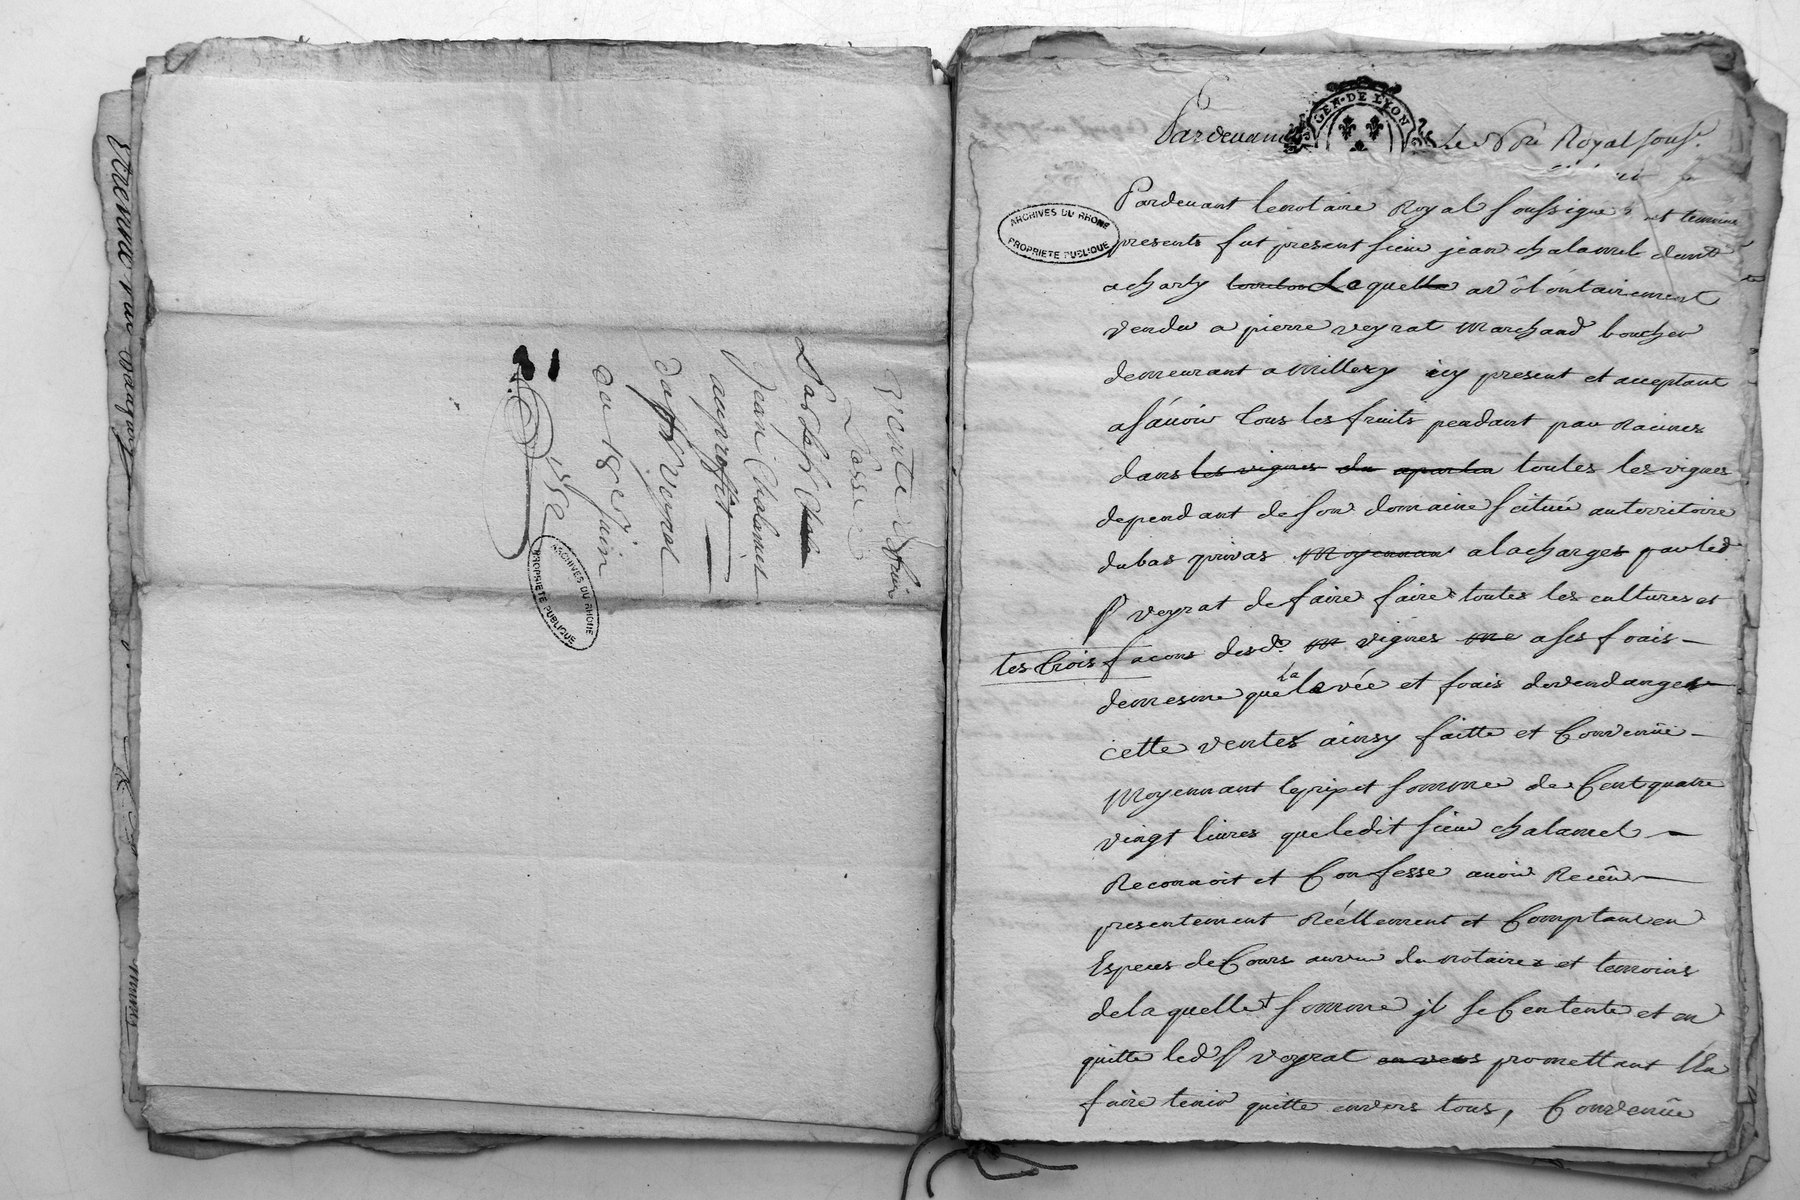 Vente
Passé
Par le Sr
Jean Chalamel
au proffit
du Sr Veyrat
du 18e juin
ARCHIVES DU RHONE
PROPRIETE PUBLIQUE
GEN. DE LYON
Pardevant Le Nore Royal sousr.
ARCHIVES DU RHONE
PROPRIETE PUBLIQUE
Pardevant le notaire Royal soussigné et temoins
presents fut present sieur jean chalamel demt
a charly Lequel a volontairement
vendu a pierre veyrat marchand boucher
demeurant a millery icy present et acceptant
asçavoir tous les fruits pendant par Racines
dans les vignes du toutes les vignes
dependant de son domaine scitué au territoire
du bas privas moyennant a la charges par led
Sr veyrat de faire faire toutes les cultures et
les trois facons desd. vignes a ses frais
demesme que la levée et frais de vendanges
cette ventes ainsy faitte et Convenüe
Moyennant le prix et somme de Cent quatre
vingt livres que ledit sieur chalamel
Reconnoit et Confesse avoir Receu
presentement Réellement et Comptant en
Especes de Cours au veu du notaire et temoins
de laquelle somme il se Contente et en
quitte led Sr veyrat envers promettant l'En
faire tenir quitte envers tous, Convenüe